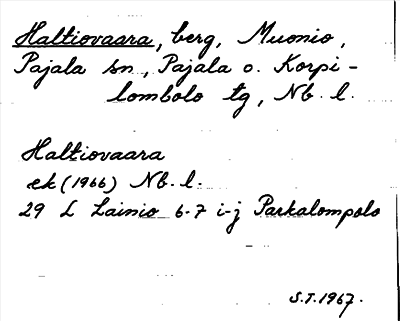 Haltiovaara, berg, Muonio,
Pajala sn, Pajala o. Korpi-
lombolo tg, Nb. l.
Haltiovaara
ek (1966) Nb. l.
29 L Lainio 6-7 i-j Parkalompolo
S.T. 1967.